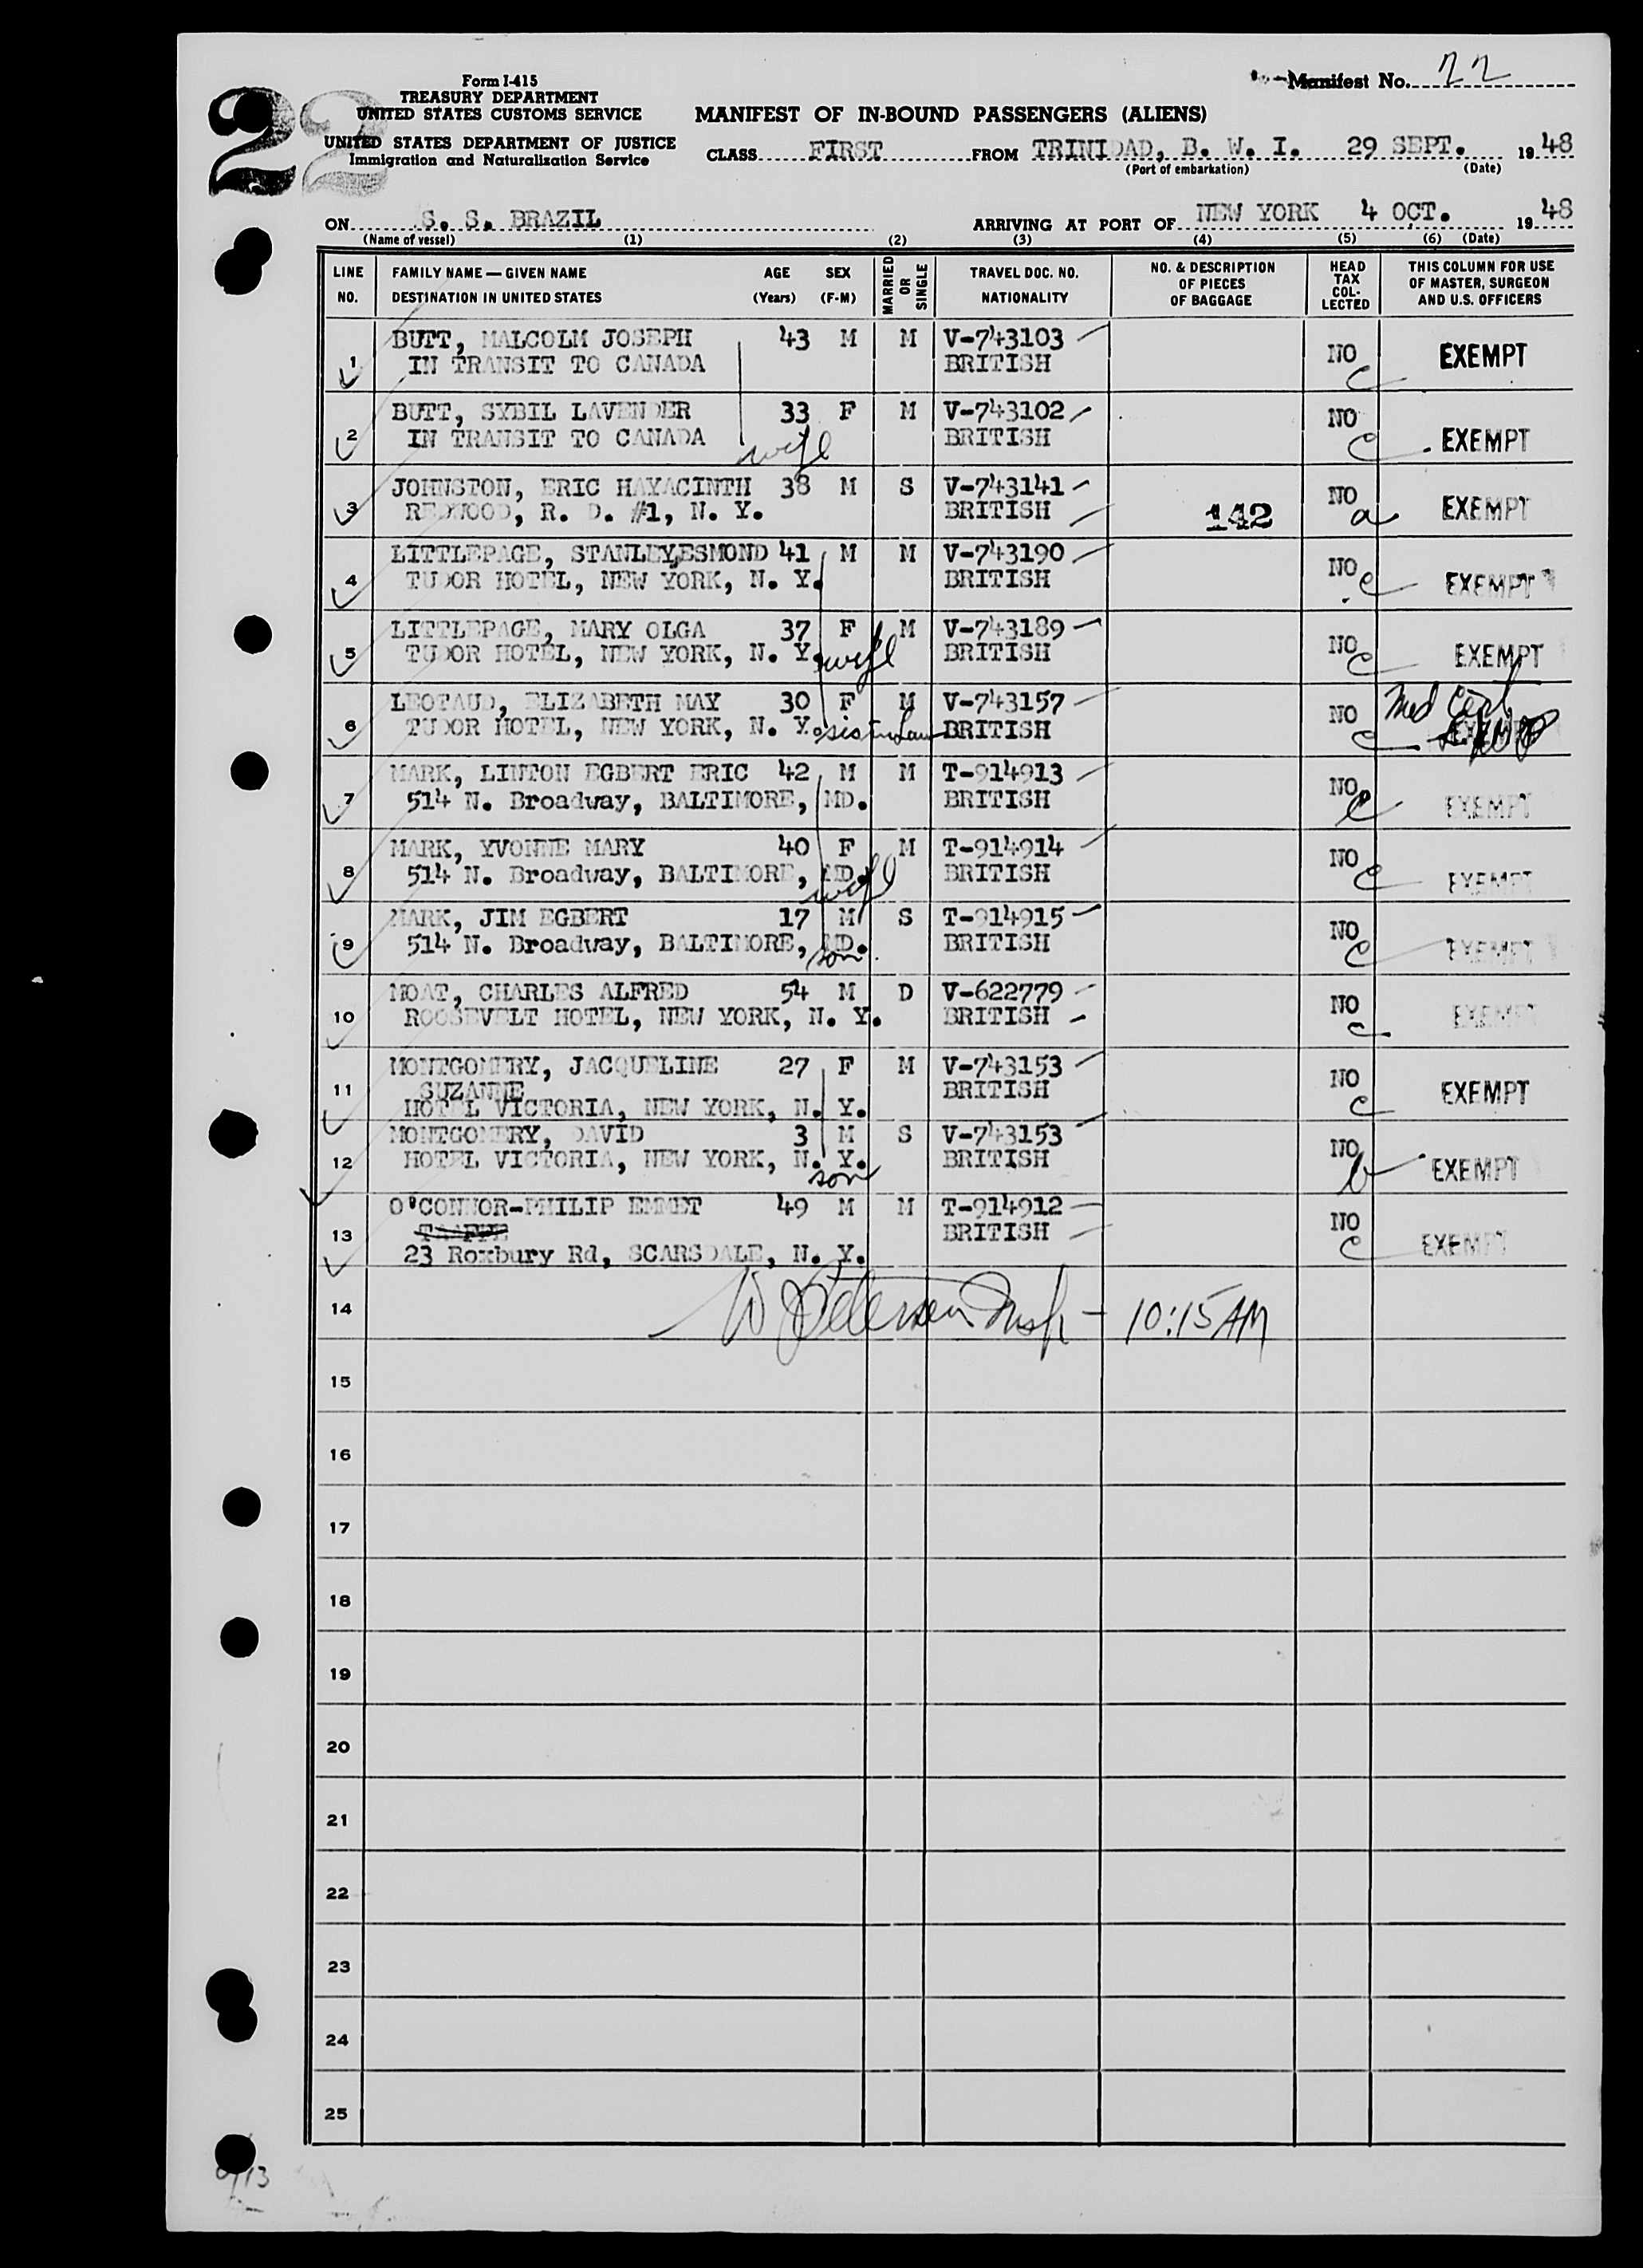 22
Form I-415
TREASURY DEPARTMENT
UNITED STATES CUSTOMS SERVICE
UNITED STATES DEPARTMENT OF JUSTICE
Immigration and Naturalization Service
Manifest No. 22
MANIFEST OF IN-BOUND PASSENGERS (ALIENS)
CLASS FIRST FROM TRINIDAD, B. W. I. 29 SEPT. 1948
(Port of embarkation) (Date)
ON S. S. BRAZIL ARRIVING AT PORT OF NEW YORK 4 OCT. 1948
(Name of vessel) (1) (2) (3) (4) (5) (6) (Date)
LINE NO. FAMILY NAME — GIVEN NAME DESTINATION IN UNITED STATES AGE (Years) SEX (F-M) MARRIED OR SINGLE TRAVEL DOC. NO. NATIONALITY NO. & DESCRIPTION OF PIECES OF BAGGAGE HEAD TAX COLLECTED THIS COLUMN FOR USE OF MASTER, SURGEON AND U.S. OFFICERS
1 BUTT, MALCOLM JOSEPH 43 M M V-743103 NO c EXEMPT
IN TRANSIT TO CANADA BRITISH
2 BUTT, SYBIL LAVENDER 33 F M V-743102 NO c EXEMPT
IN TRANSIT TO CANADA wife BRITISH
3 JOHNSTON, ERIC HAYACINTH 38 M S V-743141 142 NO a EXEMPT
REDWOOD, R. D. #1, N. Y. BRITISH
4 LITTLEPAGE, STANLEY,ESMOND 41 M M V-743190 NO c EXEMPT
TUDOR HOTEL, NEW YORK, N. Y. BRITISH
5 LITTLEPAGE, MARY OLGA 37 F M V-743189 NO c EXEMPT
TUDOR HOTEL, NEW YORK, N. Y. wife BRITISH
6 LEOTAUD, ELIZABETH MAY 30 F M V-743157 NO c Med Cert
TUDOR HOTEL, NEW YORK, N. Y. sis in Law BRITISH
7 MARK, LINTON EGBERT ERIC 42 M M T-914913 NO c EXEMPT
514 N. Broadway, BALTIMORE, MD. BRITISH
8 MARK, YVONNE MARY 40 F M T-914914 NO c EXEMPT
514 N. Broadway, BALTIMORE, MD. wife BRITISH
9 MARK, JIM EGBERT 17 M S T-914915 NO c EXEMPT
514 N. Broadway, BALTIMORE, MD. son BRITISH
10 MOAT, CHARLES ALFRED 54 M D V-622779 NO c EXEMPT
ROOSEVELT HOTEL, NEW YORK, N. Y. BRITISH
11 MONTGOMERY, JACQUELINE 27 F M V-743153 NO c EXEMPT
SUZANNE BRITISH
HOTEL VICTORIA, NEW YORK, N. Y.
12 MONTGOMERY, DAVID 3 M S V-743153 NO b EXEMPT
HOTEL VICTORIA, NEW YORK, N. Y. son BRITISH
13 O'CONNOR-PHILIP EMMET 49 M M T-914912 NO c EXEMPT
TAAFFE BRITISH
23 Roxbury Rd, SCARSDALE, N. Y.
14 W Petersen Insp - 10:15 AM
15
16
17
18
19
20
21
22
23
24
25